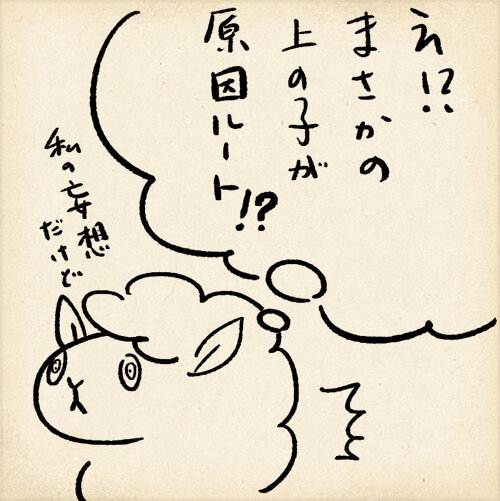 え!?
まさかの
上の子が
原因ルート!?
私の妄想
だけど